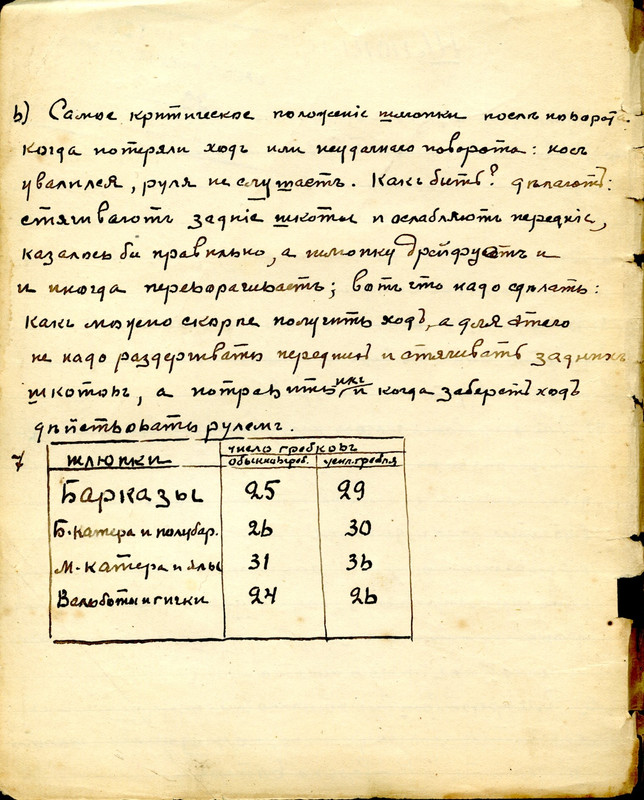 6) Самое критическое положеніе шлюпки послѣ поворот
когда потеряли ходъ или неудачнаго поворота: носъ
увалился, руля не слушаетъ. Какъ быть? дѣлаютъ:
стягиваютъ задніе шкоты и ослабляютъ передніе,
казалось бы правильно, а шлюпку дрейфуетъ и
и иногда переворачиваетъ; вотъ что надо сдѣлать:
какъ можно скорѣе получить ходъ, а для этого
не надо раздергивать переднихъ и стягивать заднихъ
шкотовъ, а потравить ихъ и когда заберетъ ходъ
дѣйствовать рулемъ.
7 шлюпки число гребковъ
обыкнов. греб. усил. гребля
Барказы 25 29
Б. катера и полубар. 26 30
М. катера и ялы 31 36
Вельботы и гички 24 26